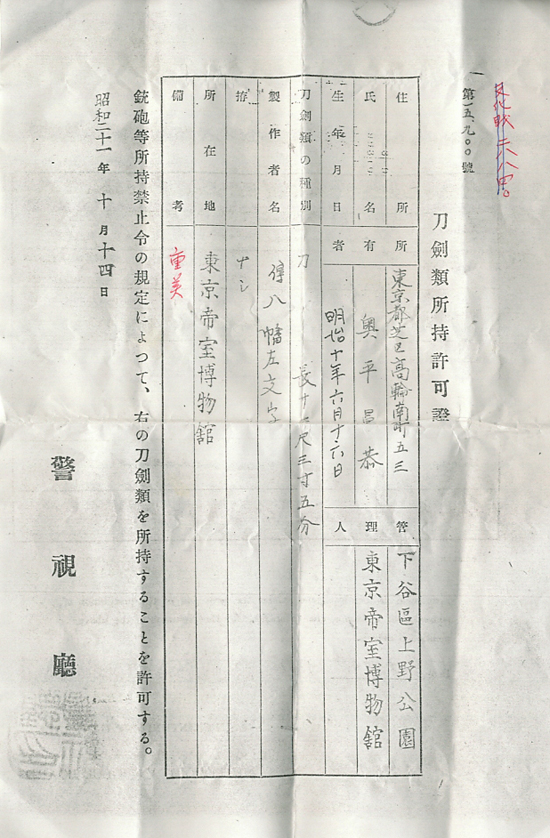 第一五、九〇〇號
刀劍類所持許可證
住所
氏名
生年月日
所有者
東京都芝区高輪南町五三
奥平昌恭
明治十年六月十六日
管理人
下谷區上野公園
東京帝室博物館
刀劍類の種別
刀
長サ二尺三寸五分
製作者名
傳八幡左文字
拵
ナシ
所在地
東京帝室博物館
備考
重美
銃砲等所持禁止令の規定によつて、右の刀劍類を所持することを許可する。
昭和二十一年十月十四日
警視廳